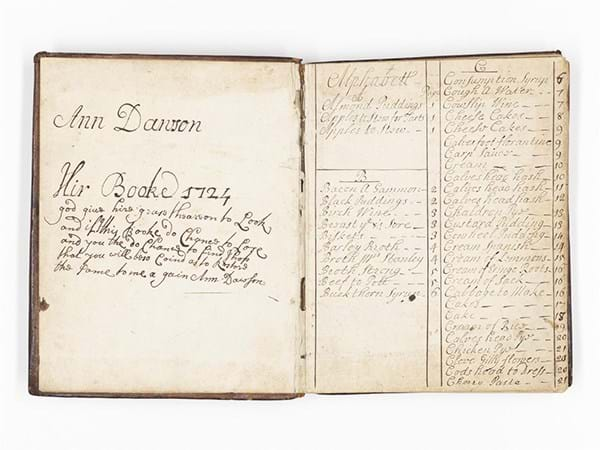 Ann Dawson
Hir Booke 1724
god give hire grase thearon to Look
and if this Booke do Chance to Lose
and you the do Chance to find
that you will be so Coind as to Restore
the same to me a gain Ann Dawson
Alphabett
Almond Puddings 1
Apples to Stow for Tarts 1
Apples to Stow 1
B
Bacon a Gammon 2
Black Puddings 2
Birch Wine 3
Sore 3
Biskets 3
Barley Broth 4
Broth Mrs Stanley 4
Broth Strong 5
Beef to Pott 5
Buckthorn Syrupe 6
C
Consumption Syrup 6
Cough a Water 7
Cowslip Wine 7
Cheese Cakes 8
Cheese Cakes 9
Calves foot florantine 9
Carp Sauce 9
Cream 10
Calves head hash 10
Calves head hash 11
Calves head hash 12
Custard Pudding
Cream Spanish 14
Cream of Lemmons 15
Cream of Ringe Roots 16
Cream of Sack 16
Cabbage to Make 16
Cakes 17
Cake 18
Cream of Rice 19
Calves head Pye 20
Chicken Pye 21
Clove Gilly flowers 20
Cods head to dress 20
Paste 21